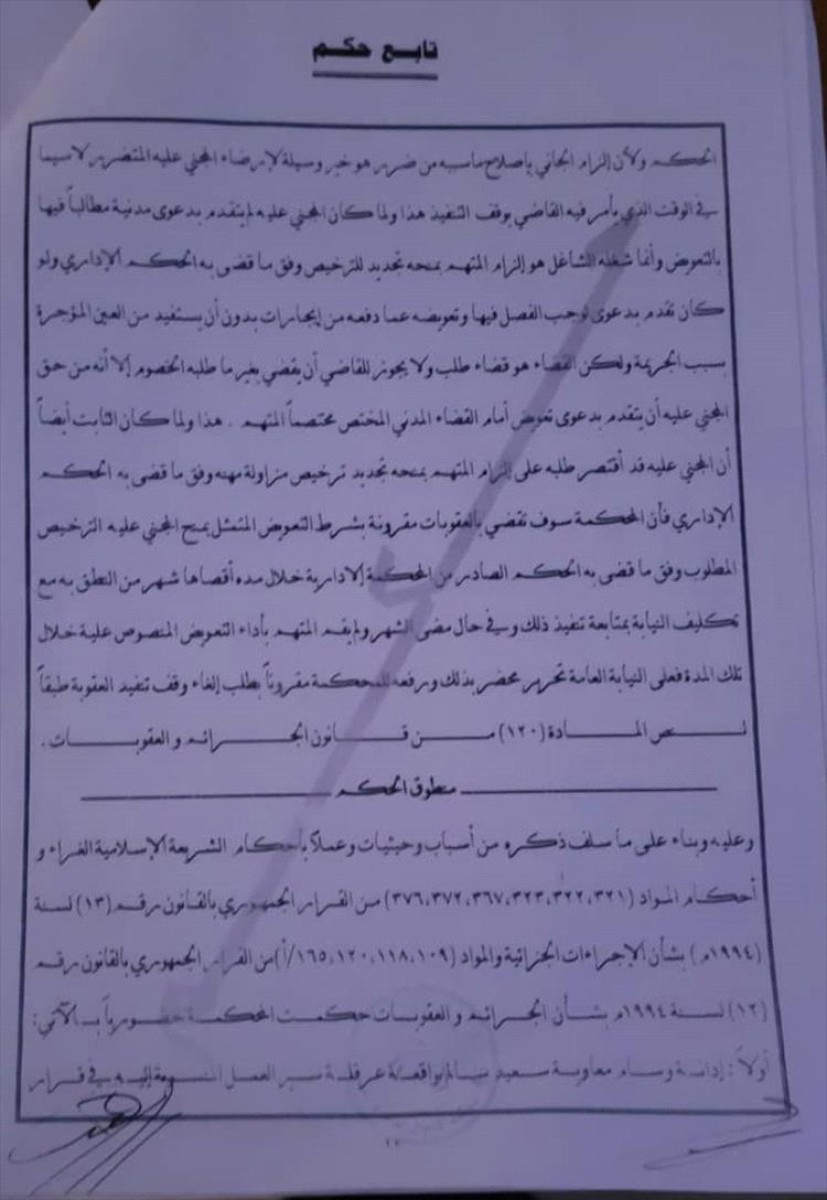 تابع حكم
الحكم ولأن إلزام الجاني بإصلاح ماسببه من ضرر هو خير وسيلة لإرضاء المجني عليه المتضرر لاسيما
في الوقت الذي يأمر فيه القاضي بوقف التنفيذ هذا ولما كان المجني عليه لم يتقدم بدعوى مدنية مطالباً فيها
بالتعويض وأنما شغله الشاغل هو إلزام المتهم بمنحه تجديد للترخيص وفق ما قضى به الحكم الإداري ولو
كان تقدم بدعوى لوجب الفصل فيها وتعويضه عما دفعه من إيجارات بدون أن يستفيد من العين المؤجرة
بسبب الجريمة ولكن القضاء هو قضاء طلب ولا يجوز للقاضي أن يقضي بغير ما طلبه الخصوم إلا أنه من حق
المجني عليه أن يتقدم بدعوى تعويض أمام القضاء المدني المختص مختصماً المتهم . هذا ولما كان الثابت أيضاً
أن المجني عليه قد أقتصر طلبه على إلزام المتهم بمنحه تجديد ترخيص مزاولة مهنه وفق ما قضى به الحكم
الإداري فأن المحكمة سوف تقضي بالعقوبات مقرونة بشرط التعويض المتمثل بمنح المجني عليه الترخيص
المطلوب وفق ما قضى به الحكم الصادر من المحكمة الادارية خلال مده أقصاها شهر من النطق به مع
تكليف النيابة بمتابعة تنفيذ ذلك وفي حال مضى الشهر ولم يقم المتهم بأداء التعويض المنصوص علية خلال
تلك المدة فعلى النيابة العامة تحرير محضر بذلك ورفعه للمحكمة مقروناً بطلب إلغاء وقف تنفيذ العقوبة طبقاً
لنص المادة (١٢٠) من قانون الجرائم والعقوبات .
منطوق الحكم
وعليه وبناء على ما سلف ذكره من أسباب وحيثيات وعملاً بأحكام الشريعة الإسلامية الغراء و
أحكام المواد (٣٢١، ٣٢٢، ٣٢٣، ٣٦٧، ٣٧٢، ٣٧٦) من القرار الجمهوري بالقانون رقم (١٣) لسنة
(١٩٩٤م) بشأن الإجراءات الجزائية والمواد (١٠٩، ١١٨، ١٢٠، ١٦٥/أ) من القرار الجمهوري بالقانون رقم
(١٢) لسنة ١٩٩٤م بشأن الجرائم والعقوبات حكمت المحكمة حضورياً بالآتي:
أولاً: إدانة وسام معاوية سعيد سالم بواقعة عرقلة سير العمل المنسوبة إليه في قرار
١٢